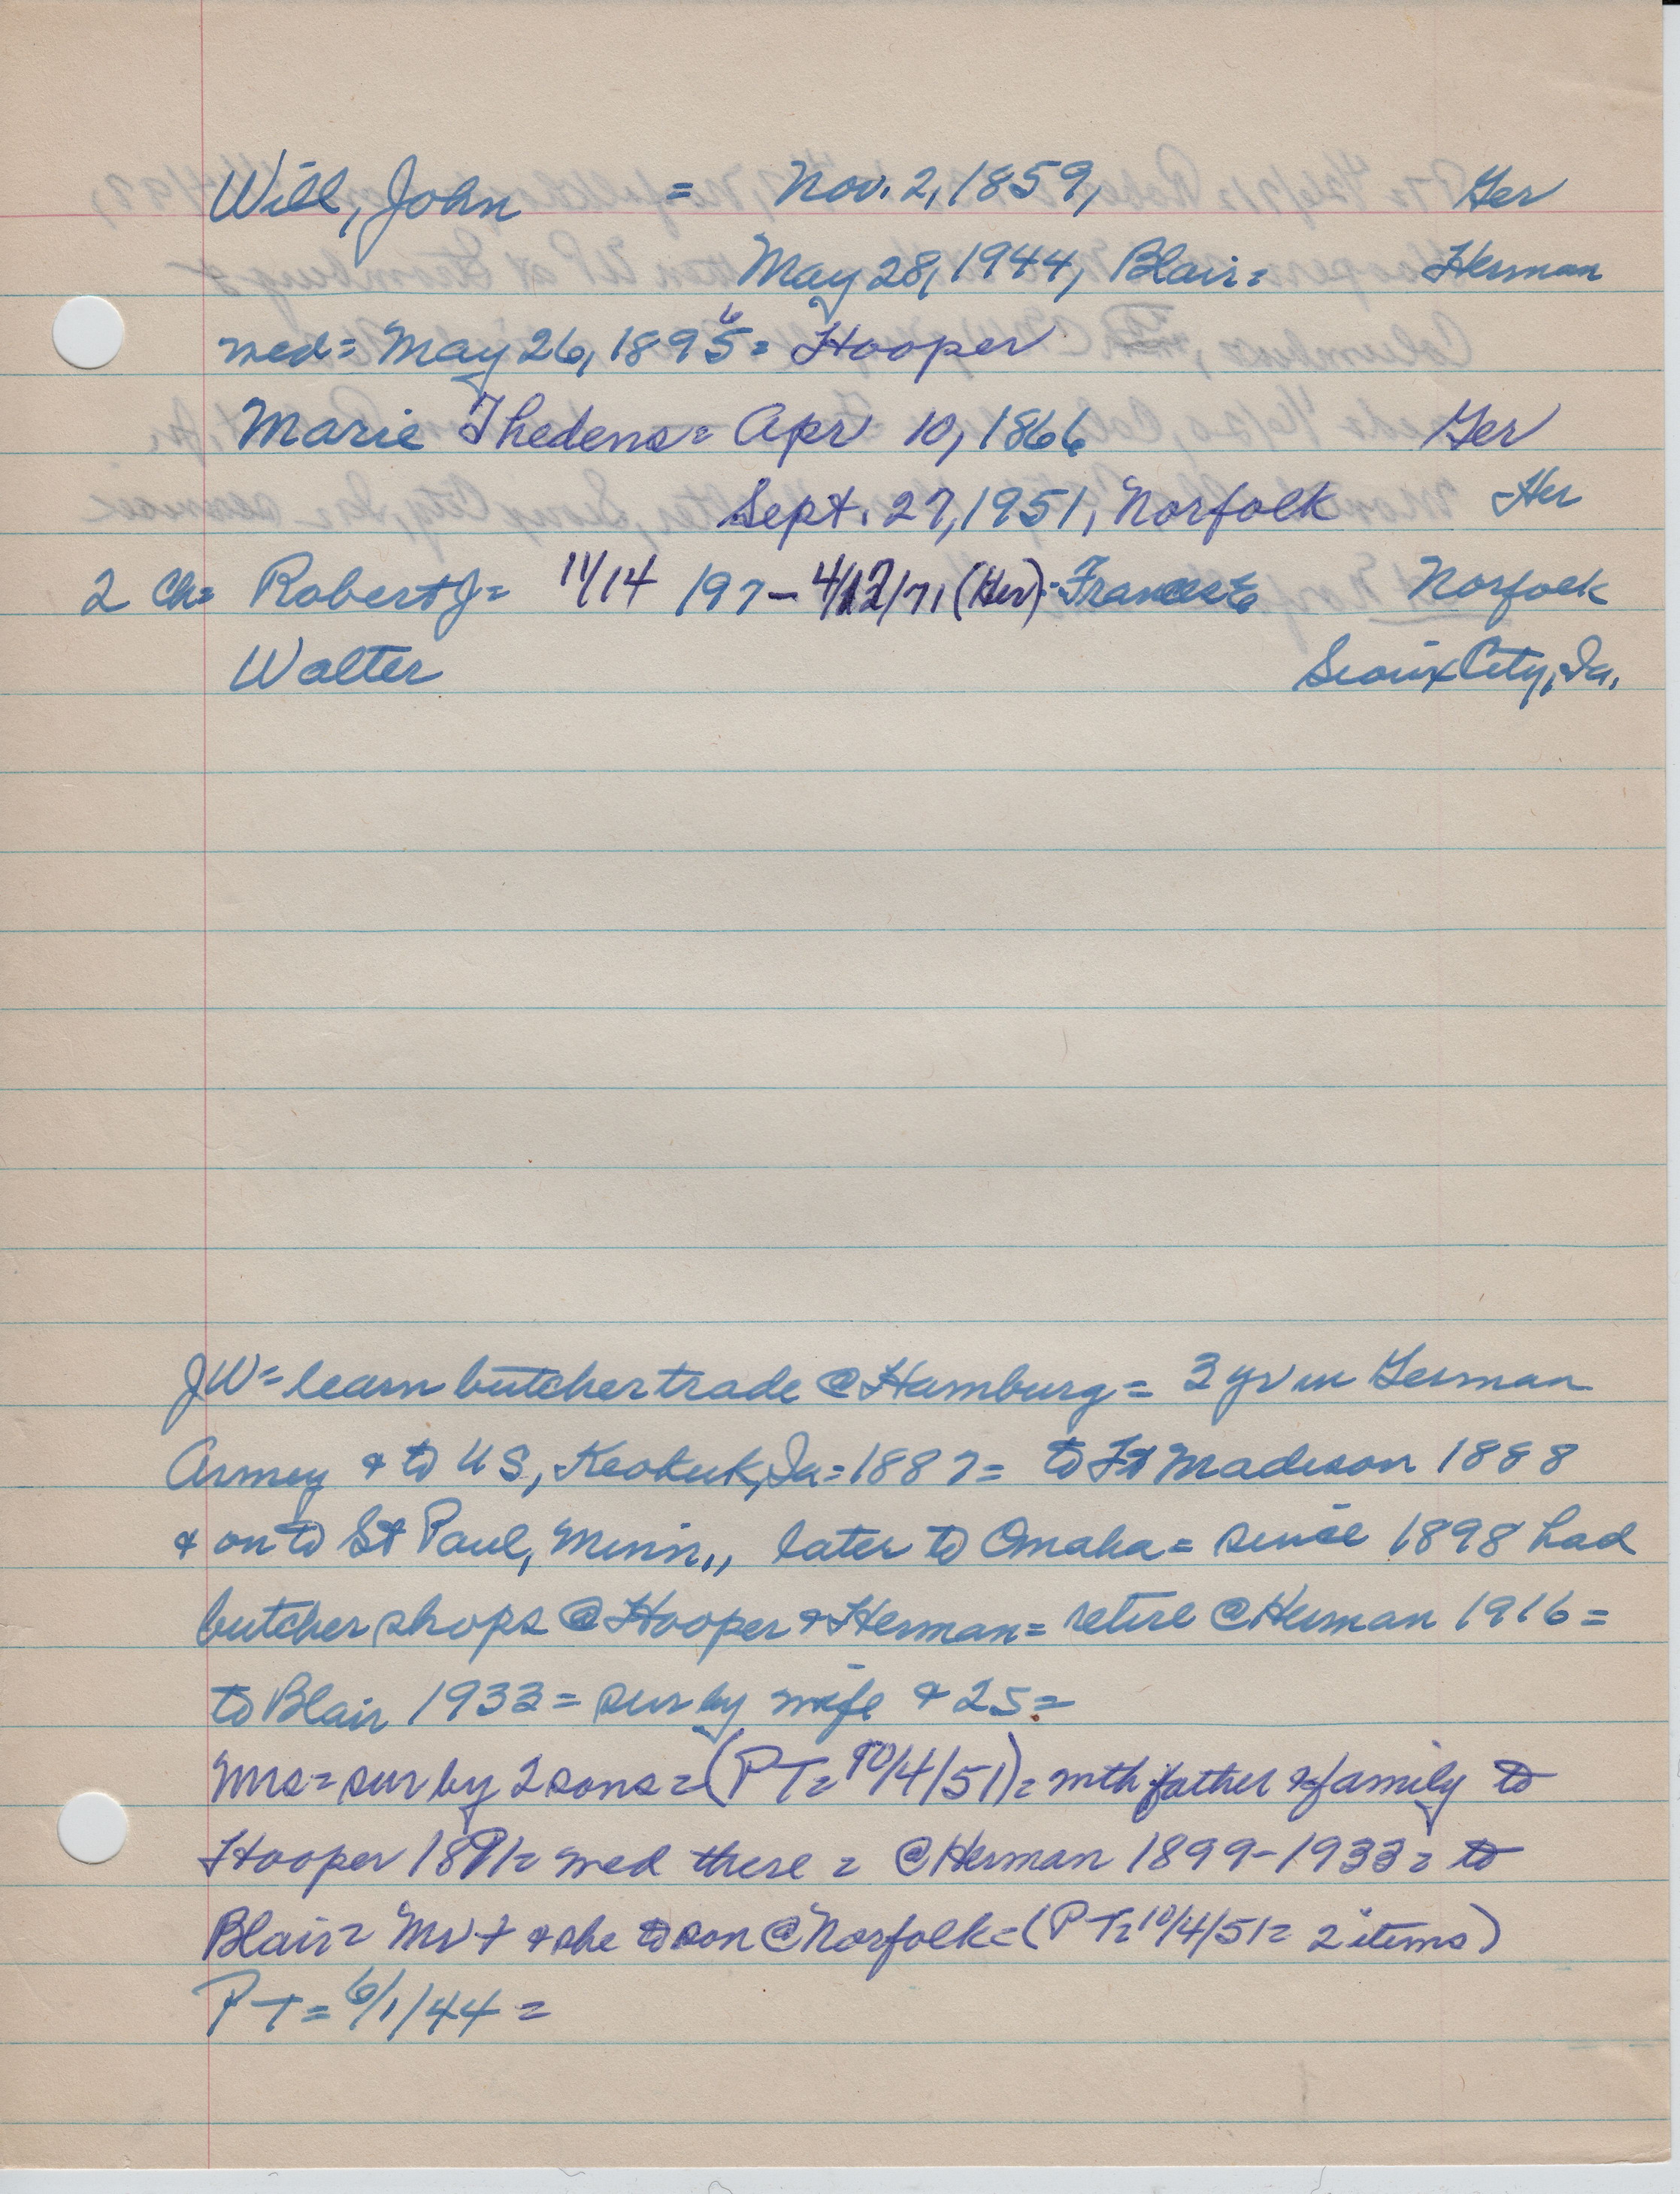 Will, John = Nov. 2, 1859, Ger
May 28, 1944, Blair = Herman
wed = May 26, 1895 6 = Hooper
Marie Thedens = Apr 10, 1866 Ger
Sept. 27, 1951, Norfolk Her
2 Ch = Robert J = 11/14 197 - 4/12/71 (Her) = Frances E Norfolk
Walter Sioux City, Ia.
JW = learn butcher trade @ Hamburg = 3 yr in German
Army & to US, Keokuk, Ia = 1887 = to Ft Madison 1888
& on to St Paul, Minn,, later to Omaha = since 1898 had
butcher shops @ Hooper & Herman = retire @ Herman 1916 =
to Blair 1933 = sur by wife & 2S =
Mrs = sur by 2 sons = (PT = 10/4/51) = with father & family to
Hooper 1891 = wed there = @ Herman 1899-1933 = to
Blair = Mr + & she to son @ Norfolk = (PT = 10/4/51 = 2 items)
PT = 6/1/44 =